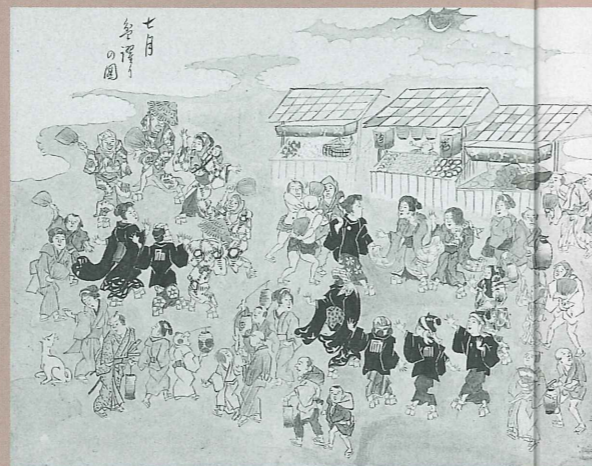 七月
盆踊り
の圖